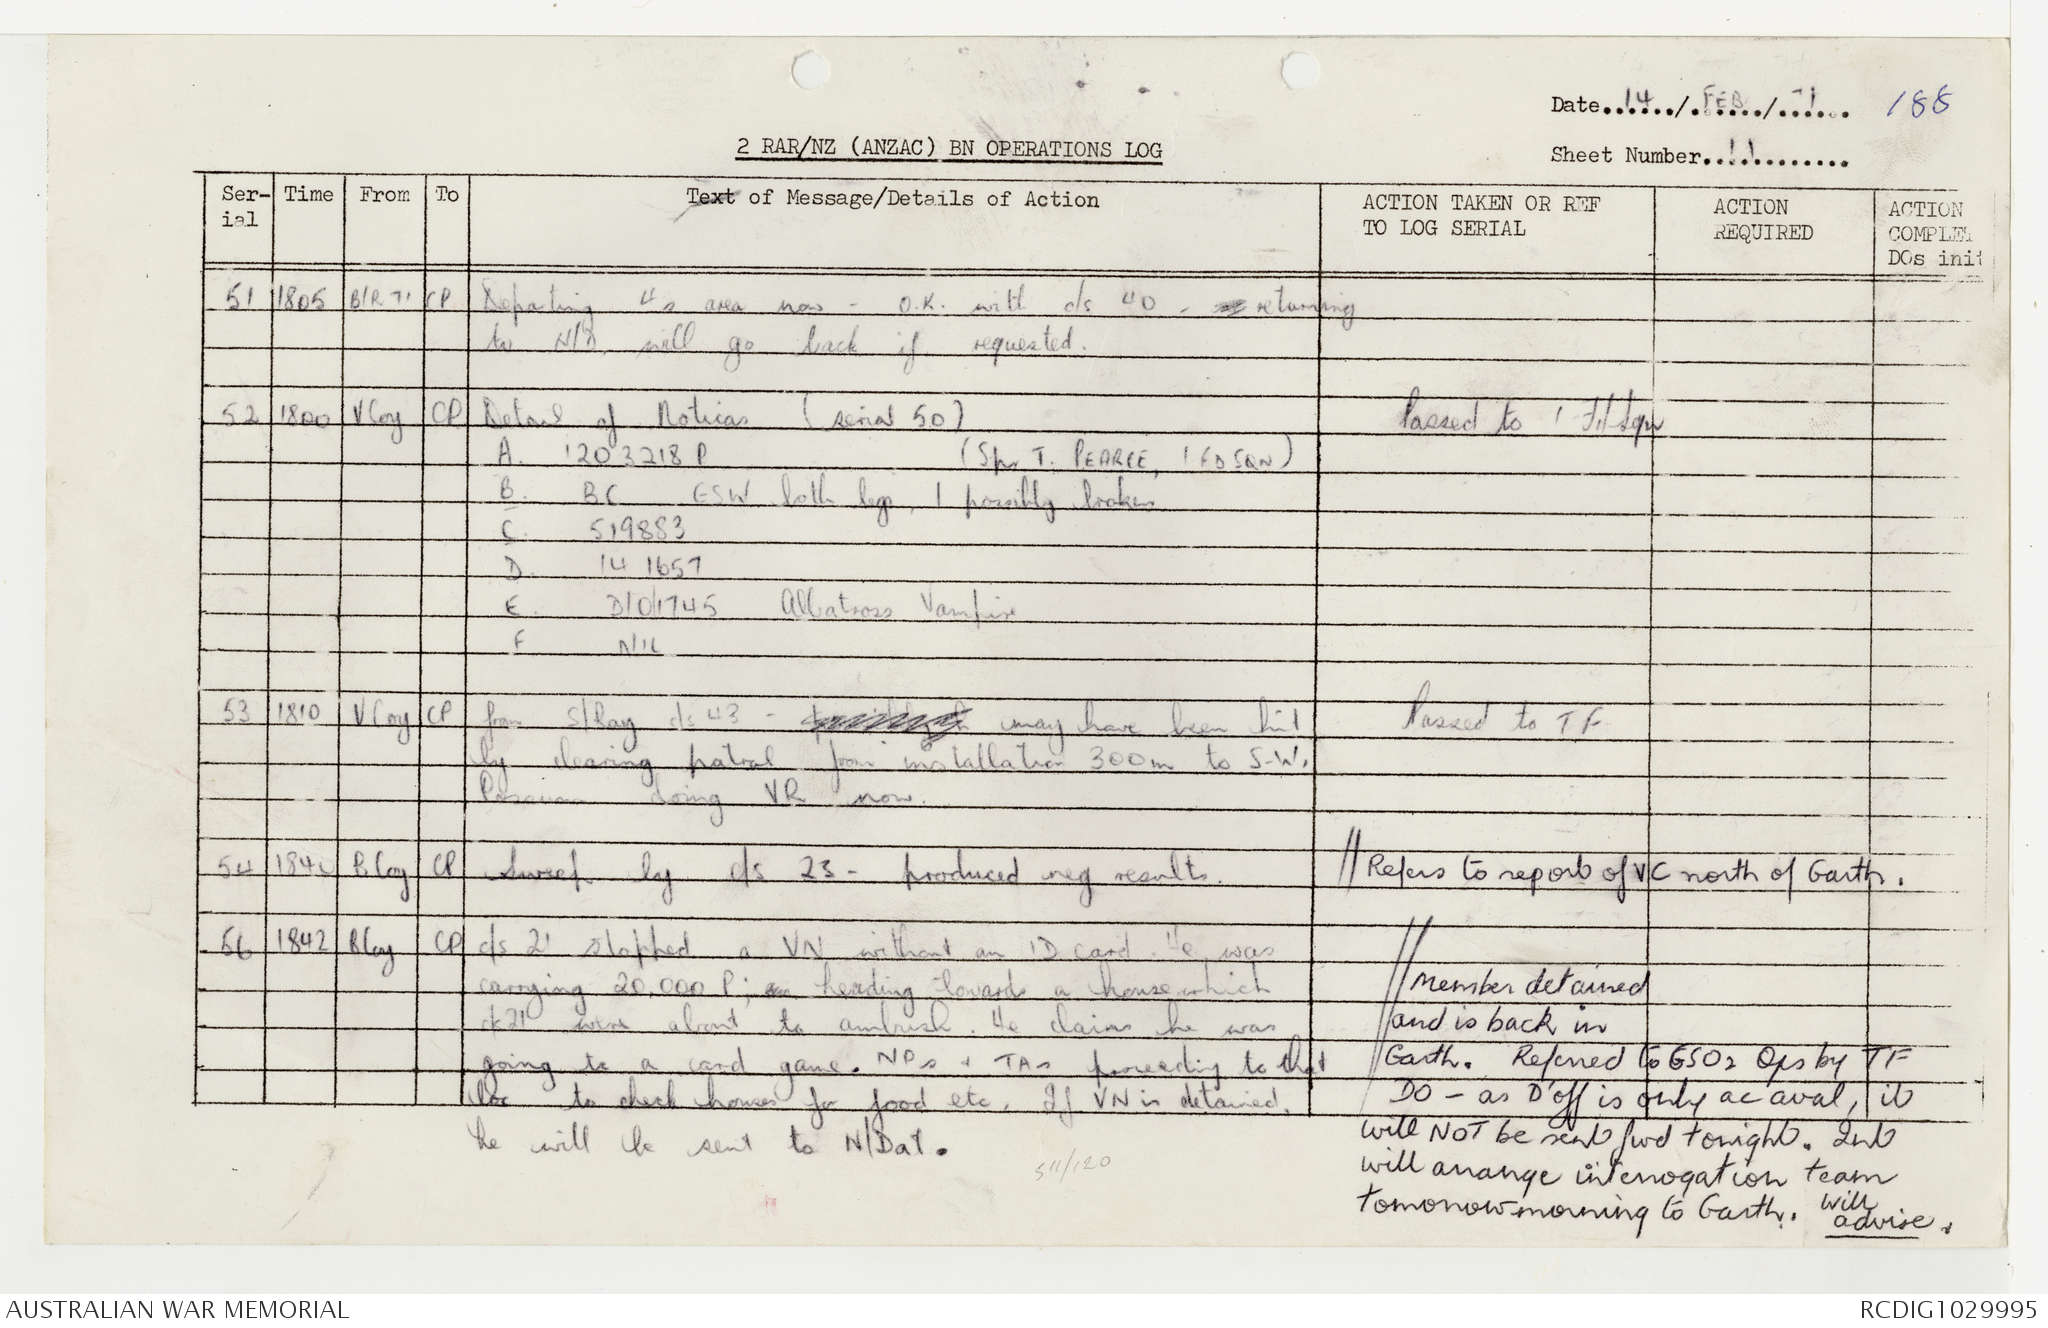 Date 14 / FEB / 71 188
2 RAR/NZ (ANZAC) BN OPERATIONS LOG
Sheet Number 11
Ser-ial Time From To Text of Message/Details of Action ACTION TAKEN OR REF TO LOG SERIAL ACTION REQUIRED ACTION COMPLE DOs init
51 1805 CP Departing 4s area now - O.K. with c/s 40 - returning
to N/D. will go back if requested.
52 1800 V Coy CP Detail of Noticas (serial 50) Passed to 1 Fd Sqn
A. 1203218 P (Spr T. PEARCE, 1 FD SQN)
B. BC GSW both legs, 1 possibly broken
C. 519883
D. 14 1657
E. D/O/1745 Albatross Vampire
F NIL
53 1810 V Coy CP from S/Ray c/s 43 - may have been hit Passed to TF
by clearing patrol from installation 300m to S-W.
Possum doing VR now.
54 B Coy CP Sweep by c/s 23 - produced neg results. // Refers to report of VC north of Garth.
56 1842 B Coy CP c/s 21 stopped a VN without an ID card. He was
carrying 20,000 P; heading towards a house which // Member detained
c/s 21 were about to ambush. He claims he was and is back in
going to a card game. NPs + TAs proceeding to that Garth. Referred to GSO2 Ops by TF
loc to check houses for food etc. If VN is detained, DO - as D'off is only ac aval, it
he will be sent to N/Dat. will NOT be sent fwd tonight. Int
511/120 will arrange interrogation team
tomorrow morning to Garth. will
advise.
AUSTRALIAN WAR MEMORIAL RCDIG1029995